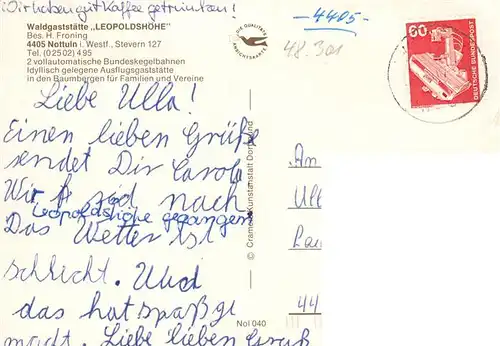 Wir haben gut Kaffee getrunken!
Waldgaststätte „LEOPOLDSHÖHE"
Bes. H. Froning
4405 Nottuln i. Westf., Stevern 127
Tel. (02502) 495
2 vollautomatische Bundeskegelbahnen
Idyllisch gelegene Ausflugsgaststätte
in den Baumbergen für Familien und Vereine
Liebe Ulla!
Einen lieben Grüße
sendet Dir Carola
Wir sid nach
Leopoldshöhe gegangen
Das Wetter ist
schlicht. Und
das hat spaß ge
macht. Liebe lieben Gruß
Nol 040
© Cramers Kunstanstalt Dortmund
DIE QUALITÄTS
ANSICHTSKARTE
-4405-
48.301
60
DEUTSCHE BUNDESPOST
An
Ull
Lau
44